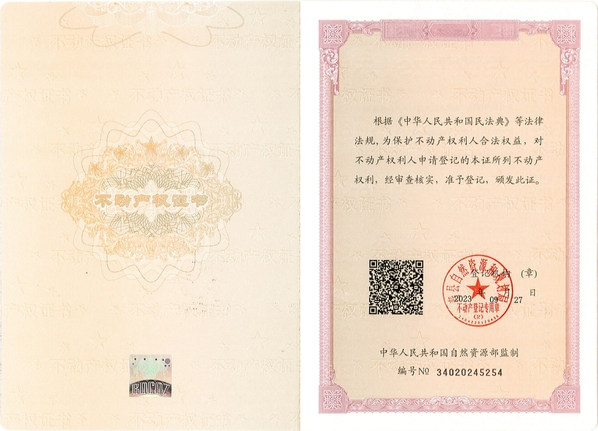 不动产权证书
根据《中华人民共和国民法典》等法律
法规,为保护不动产权利人合法权益,对
不动产权利人申请登记的本证所列不动产
权利,经审查核实,准予登记,颁发此证。
登记机构 (章)
2023 年 09 月 27 日
自然资源和规划局
不动产登记专用章
(2)
中华人民共和国自然资源部监制
编号№ 34020245254